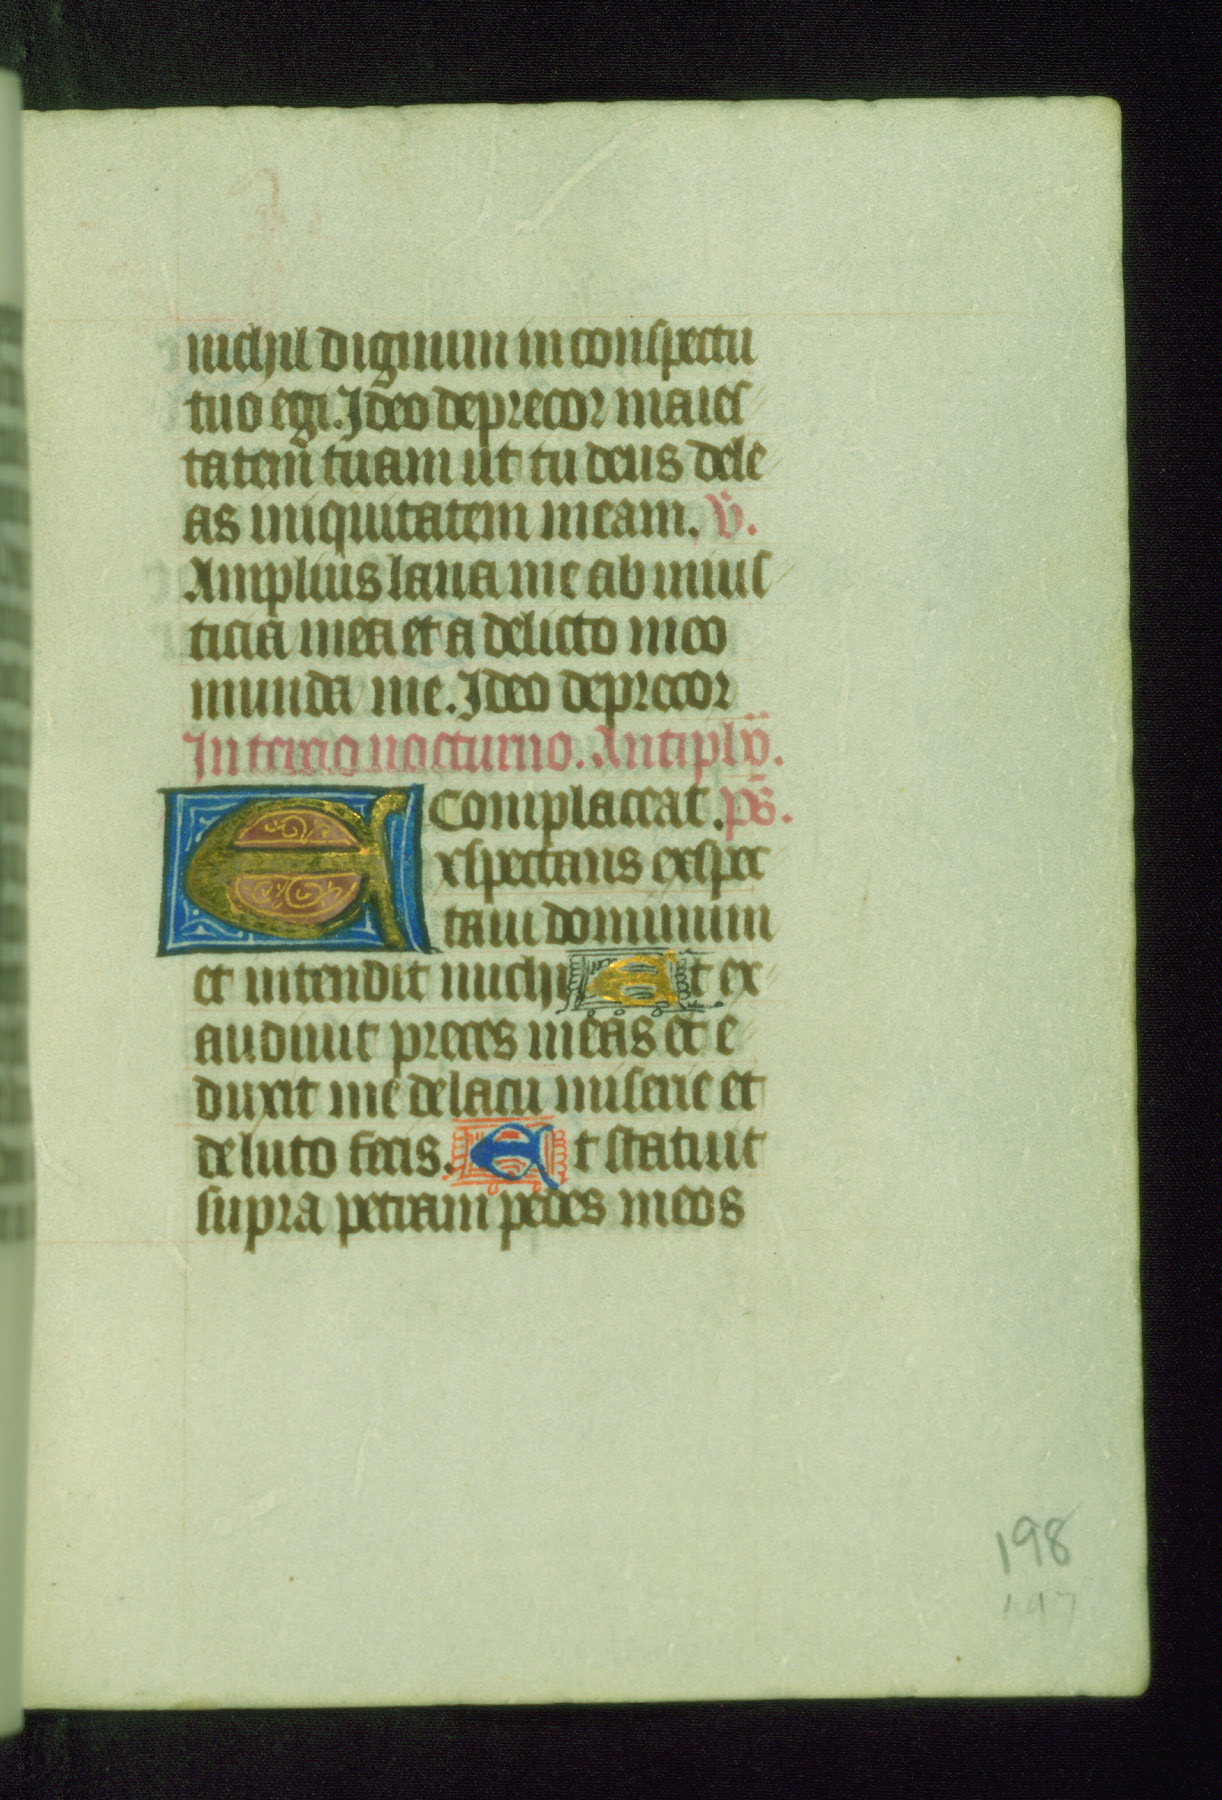 nichil dignum in conspectu
tuo egi. Ideo deprecor maies
tatem tuam ut tu deus dele
as iniquitatem meam. V̄.
Amplius laua me ab inius
ticia mea et a delicto meo
munda me. Ideo deprecor
In tercio nocturno. Antiph̄.
Complaceat. ps̄.
Exspectans exspec
taui dominum
et intendit michi Et ex
audiuit preces meas et e
duxit me de lacu miserie et
de luto fecis. Et statuit
supra petram pedes meos
198
197